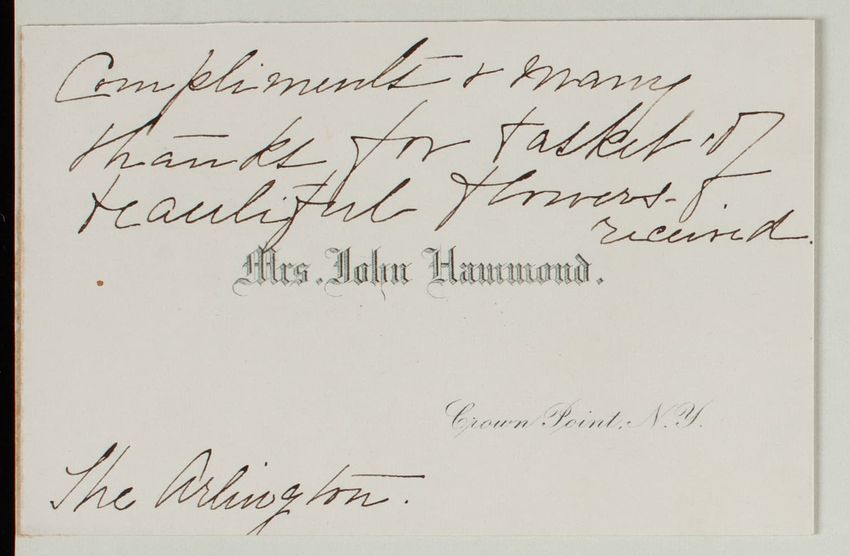 Compliments & many
thanks for basket of
beautiful flowers
received.
Mrs. John Hammond.
Crown Point, N.Y.
The Arlington.